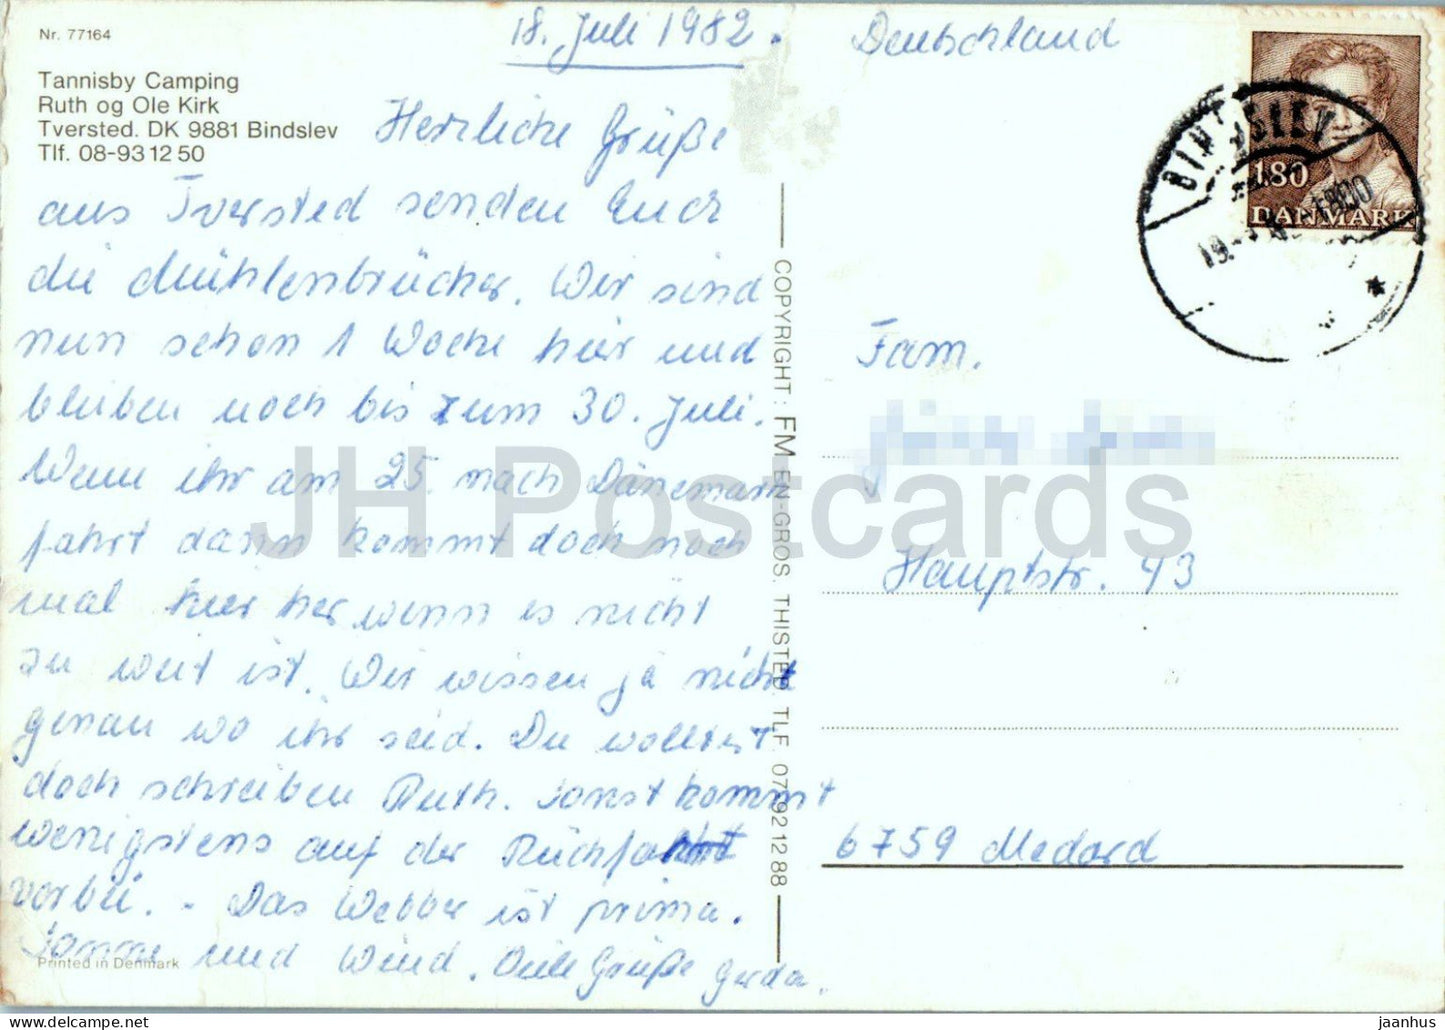 Nr. 77164
Tannisby Camping
Ruth og Ole Kirk
Tversted. DK 9881 Bindslev
Tlf. 08-93 12 50
18. Juli 1982.
Herzliche Grüße
aus Tversted senden Euch
die Mühlenbrücher. Wir sind
nun schon 1 Woche hier und
bleiben noch bis zum 30. Juli.
Wenn ihr am 25. nach Dänemark
fahrt dann kommt doch noch
mal hier her wenn es nicht
zu weit ist. Wir wissen ja nicht
genau wo ihr seid. Du wolltest
doch schreiben Ruth. Sonst kommt
wenigstens auf der Rückfahrt
vorbei. - Das Wetter ist prima.
Sonne und Wind. Viele Grüße Gerda.
Printed in Denmark
COPYRIGHT: FM EN-GROS. THISTED. TLF. 07-92 12 88
Deutschland
BINDSLEV
180
DANMARK
Fam.
Hauptstr. 43
6759 Medard
JH Postcards
jaanhus on Delcampe.net